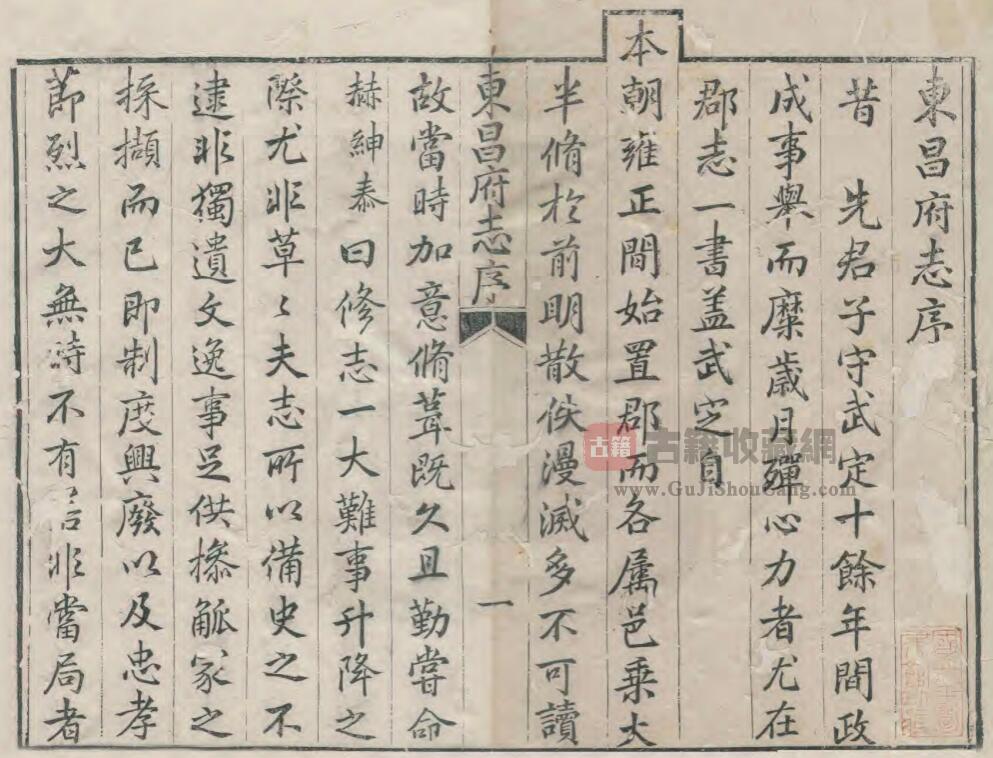 東昌府志序
昔　先君子守武定十餘年間政
成事舉而糜歲月殫心力者尤在
郡志一書盖武定自
本朝雍正間始置郡而各屬邑乗大
半脩於前明散佚漫滅多不可讀
東昌府志序 一
故當時加意脩葺既久且勤嘗命
赫紳泰曰修志一大難事升降之
際尤非草〻夫志所以備史之不
逮非獨遺文逸事足供摻觚家之
採擷而已即制度興廢以及忠孝
莭烈之大無時不有 非當局者
古籍 古籍收藏網
www.GuJiShouCang.com